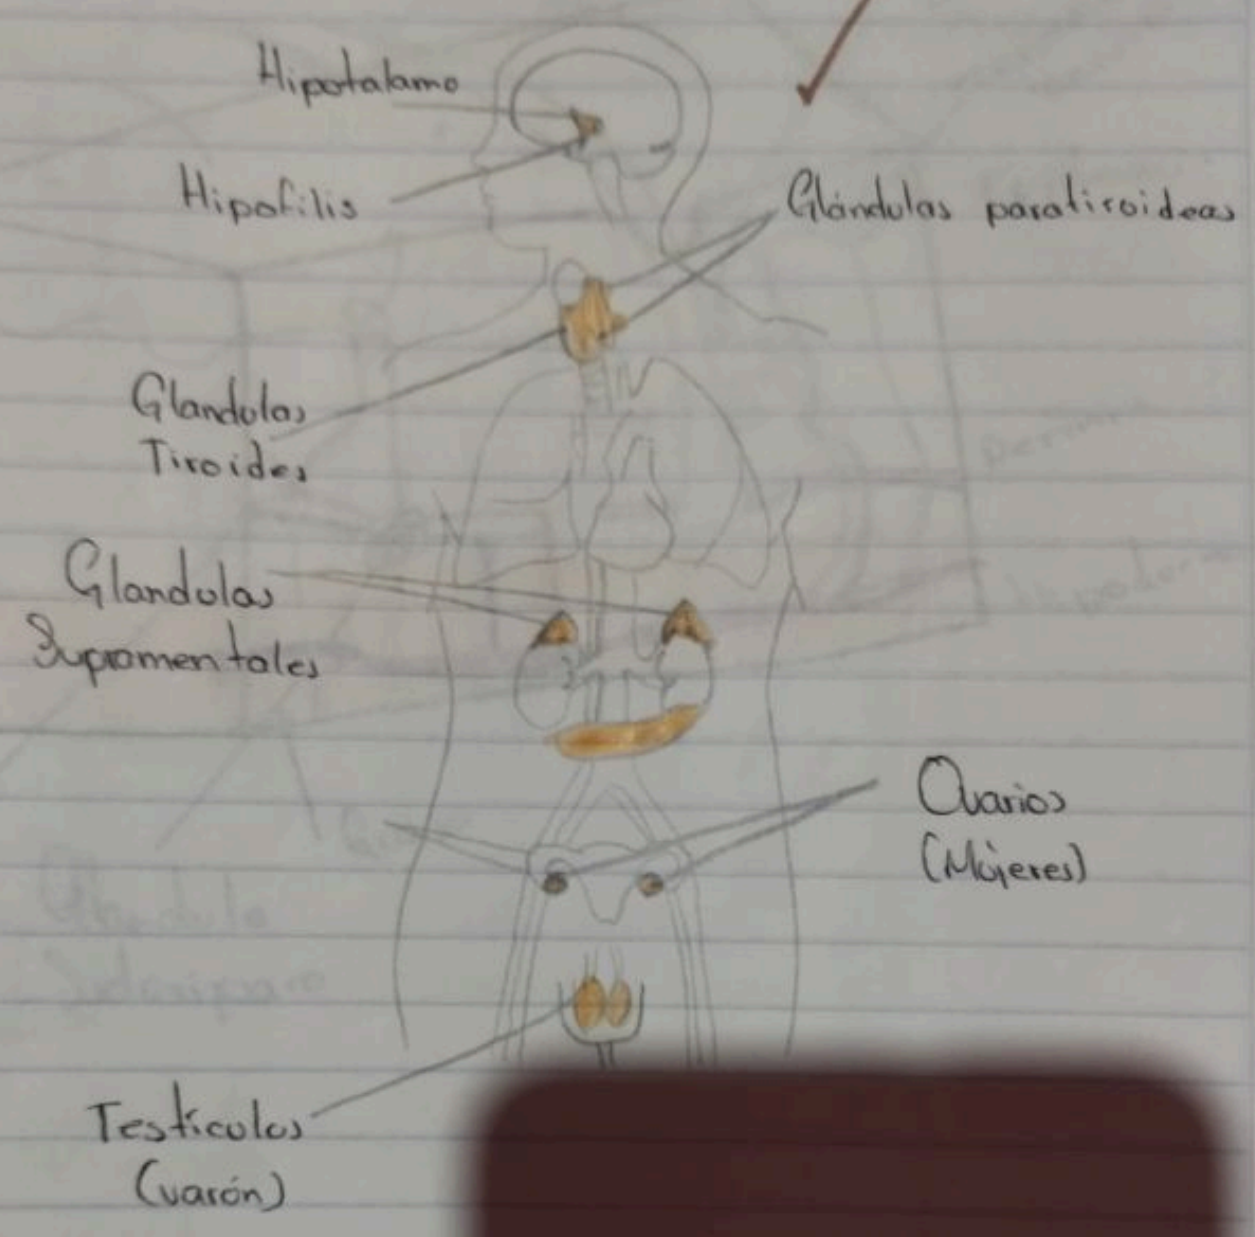 Hipotalamo
Hipofilis
Glándulas paratiroideas
Glandulas
Tiroides
Glandulas
Supramentales
Ovarios
(Mujeres)
Testiculos
(varón)